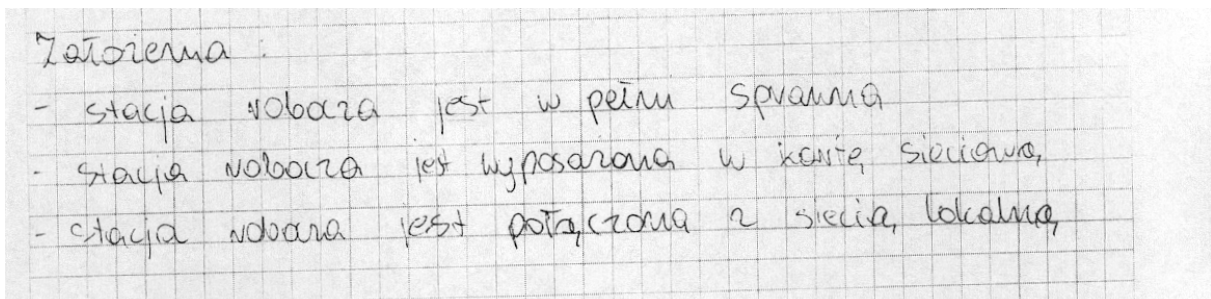 Założenia :
- stacja robocza jest w pełni sprawna
- stacja robocza jest wyposażona w kartę sieciową
- stacja robocza jest połączona z siecią lokalną